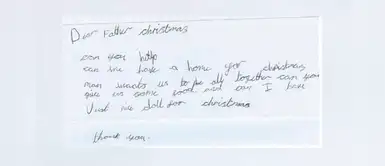 Dear Father christmas
can you help
can we have a home for christmas
mam wants us to be all together can you
give us some food and can I have
Just one doll for christmas
thank you.